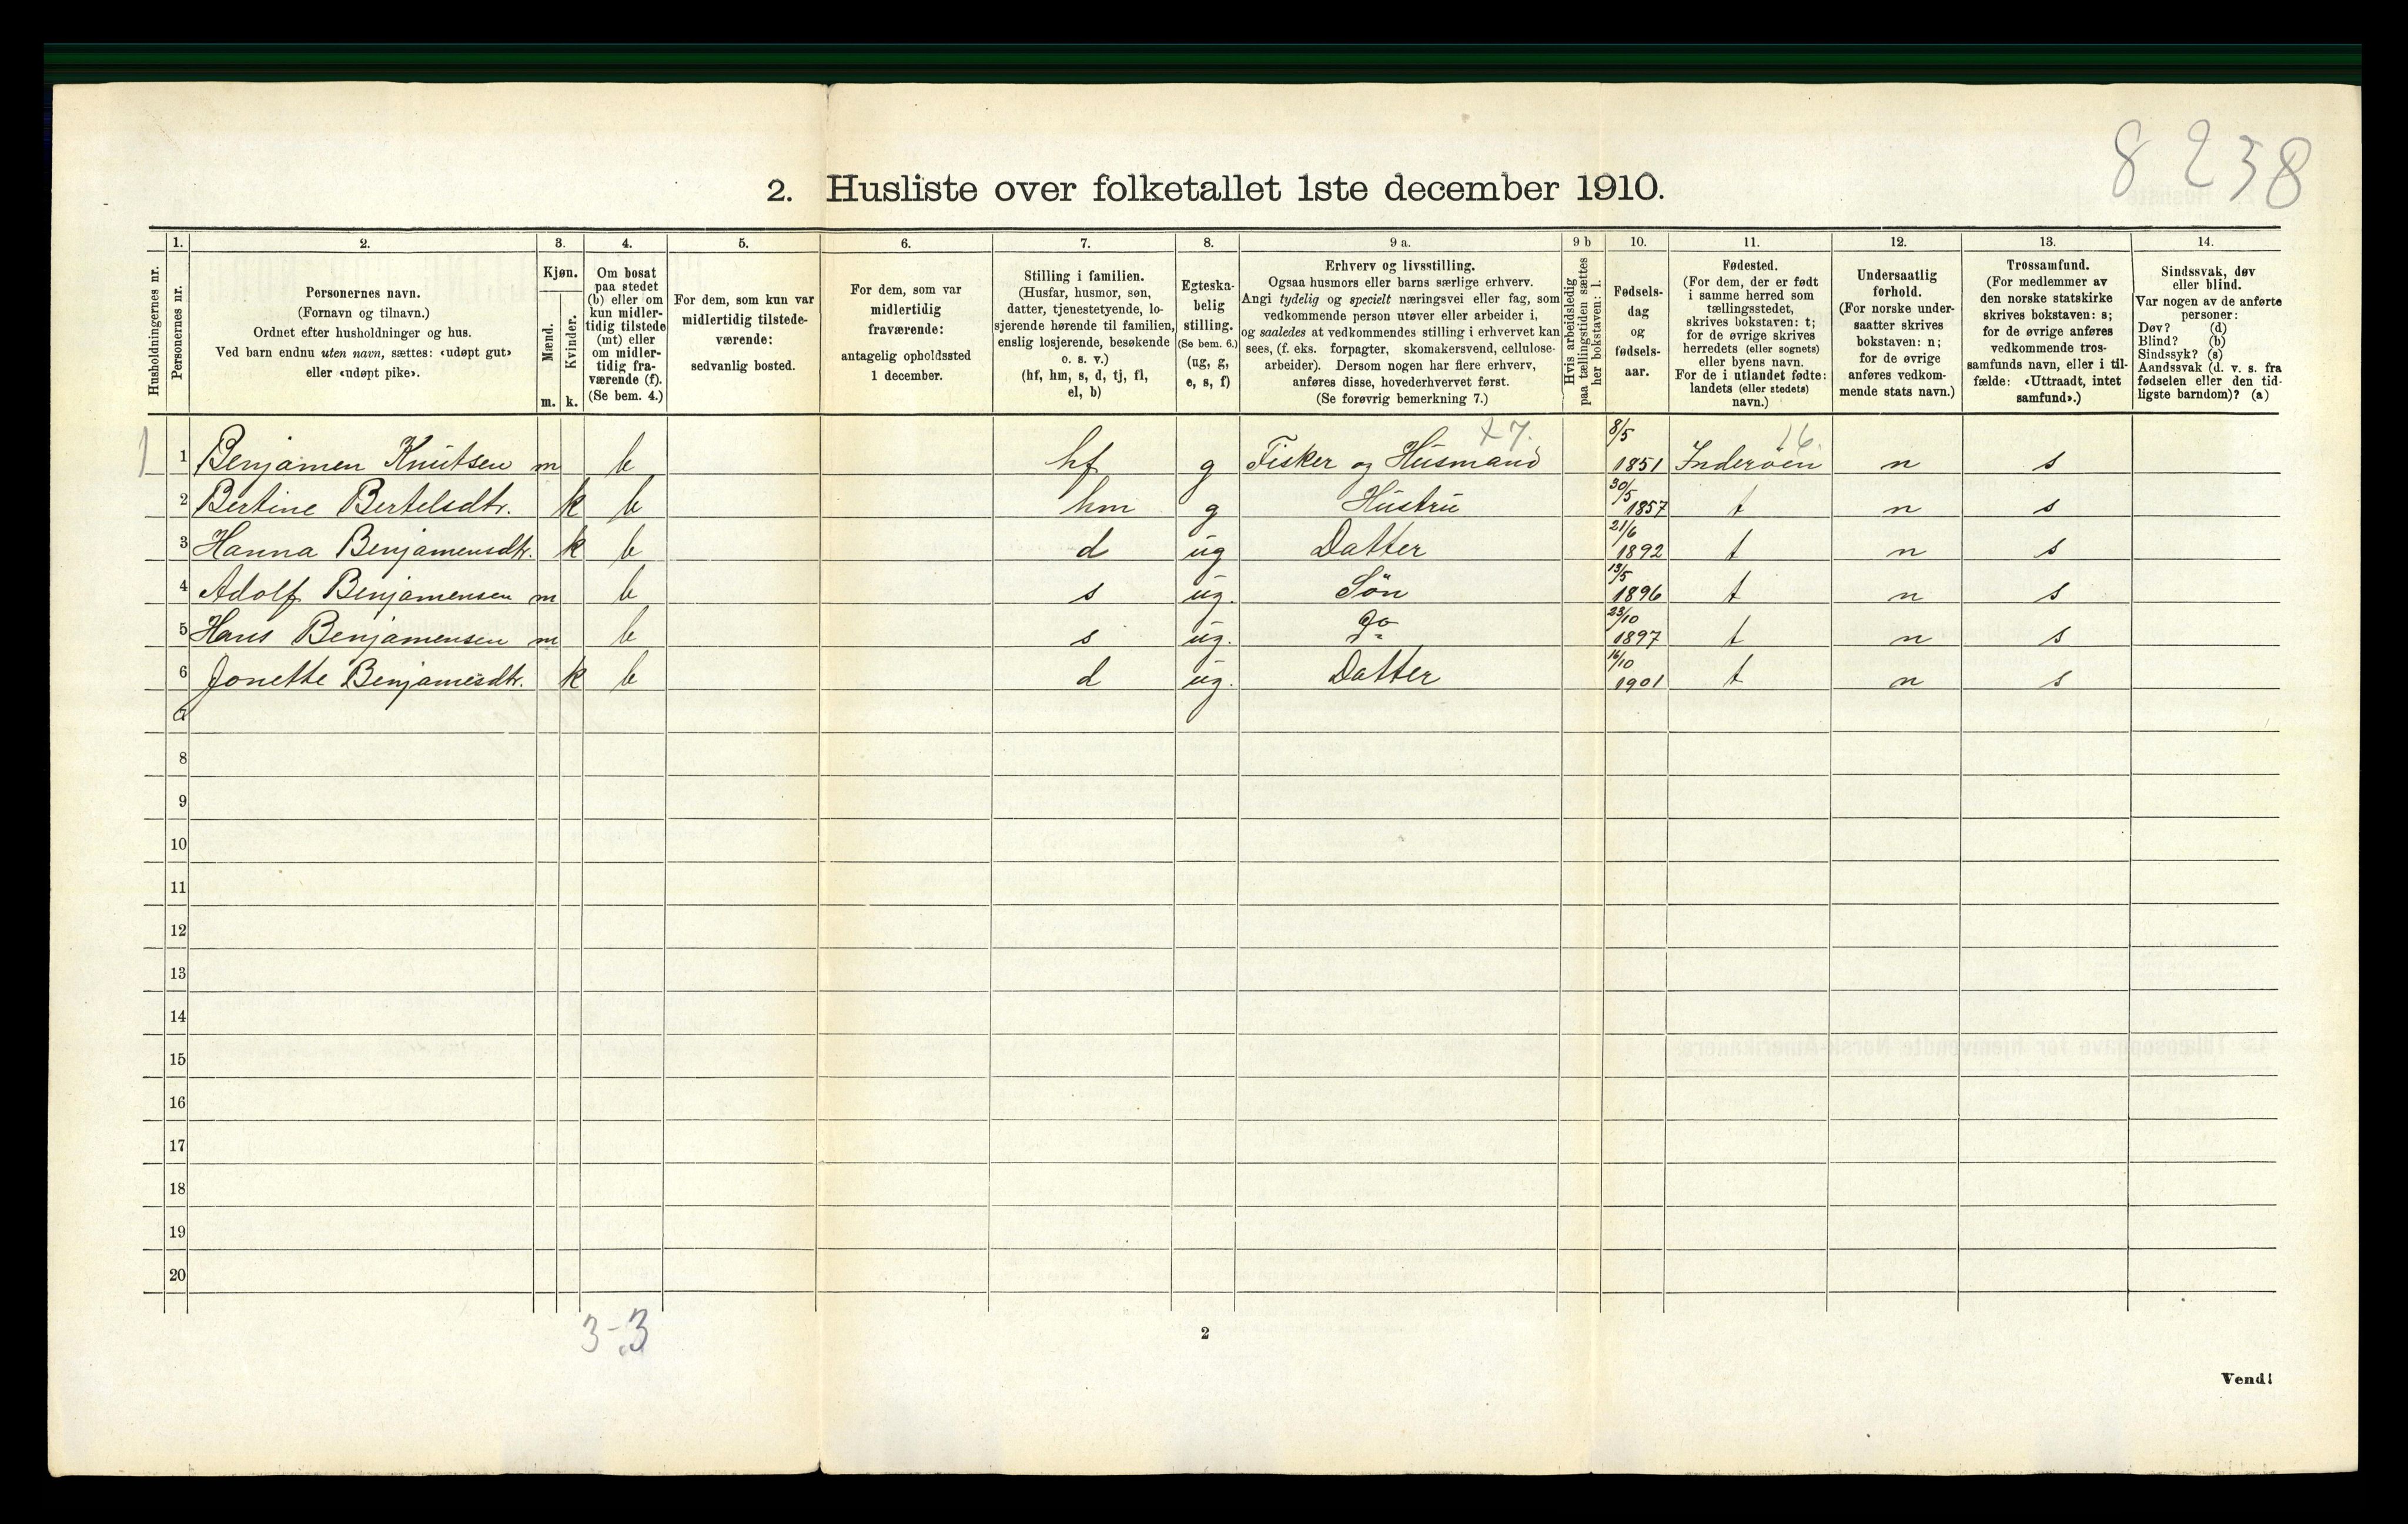 8 238
2. Husliste over folketallet 1ste december 1910.
Husholdningernes nr.
1. Personernes nr.
2. Personernes navn. (Fornavn og tilnavn.) Ordnet efter husholdninger og hus. Ved barn endnu uten navn, sættes: «udøpt gut» eller «udøpt pike».
3. Kjøn. Mænd. m. Kvinder. k.
4. Om bosat paa stedet (b) eller om kun midlertidig tilstede (mt) eller om midlertidig fraværende (f). (Se bem. 4.)
5. For dem, som kun var midlertidig tilstedeværende: sedvanlig bosted.
6. For dem, som var midlertidig fraværende: antagelig opholdssted 1 december.
7. Stilling i familien. (Husfar, husmor, søn, datter, tjenestetyende, losjerende hørende til familien, enslig losjerende, besøkende o. s. v.) (hf, hm, s, d, tj, fl, el, b)
8. Egteskabelig stilling. (Se bem. 6.) (ug, g, e, s, f)
9 a. Erhverv og livsstilling. Ogsaa husmors eller barns særlige erhverv. Angi tydelig og specielt næringsvei eller fag, som vedkommende person utøver eller arbeider i, og saaledes at vedkommendes stilling i erhvervet kan sees, (f. eks. forpagter, skomakersvend, cellulosearbeider). Dersom nogen har flere erhverv, anføres disse, hovederhvervet først. (Se forøvrig bemerkning 7.)
9 b Hvis arbeidsledig paa tællingstiden sættes her bokstaven: l.
10. Fødselsdag og fødselsaar.
11. Fødested. (For dem, der er født i samme herred som tællingsstedet, skrives bokstaven: t; for de øvrige skrives herredets (eller sognets) eller byens navn. For de i utlandet fødte: landets (eller stedets) navn.)
12. Undersaatlig forhold. (For norske undersaatter skrives bokstaven: n; for de øvrige anføres vedkommende stats navn.)
13. Trossamfund. (For medlemmer av den norske statskirke skrives bokstaven: s; for de øvrige anføres vedkommende trossamfunds navn, eller i tilfælde: «Uttraadt, intet samfund».)
14. Sindssvak, døv eller blind. Var nogen av de anførte personer: Døv? (d) Blind? (b) Sindssyk? (s) Aandssvak (d. v. s. fra fødselen eller den tidligste barndom)? (a)
1 1 Benjamen Knutsen m b hf g Fisker og Husmand 8/5 1851 Inderöen 16. n s
2 Bertine Bertelsdtr. k b hm g Hustru 30/5 1857 t n s
3 Hanna Benjamensdtr. k b d ug Datter 21/6 1892 t n s
4 Adolf Benjamensen m b s ug. Sön 13/5 1896 t n s
5 Hans Benjamensen m b s ug. Do 23/10 1897 t n s
6 Jonette Benjamesdtr. k b d ug. Datter 16/10 1901 t n s
7
8
9
10
11
12
13
14
15
16
17
18
19
20
3-3
2
Vend!